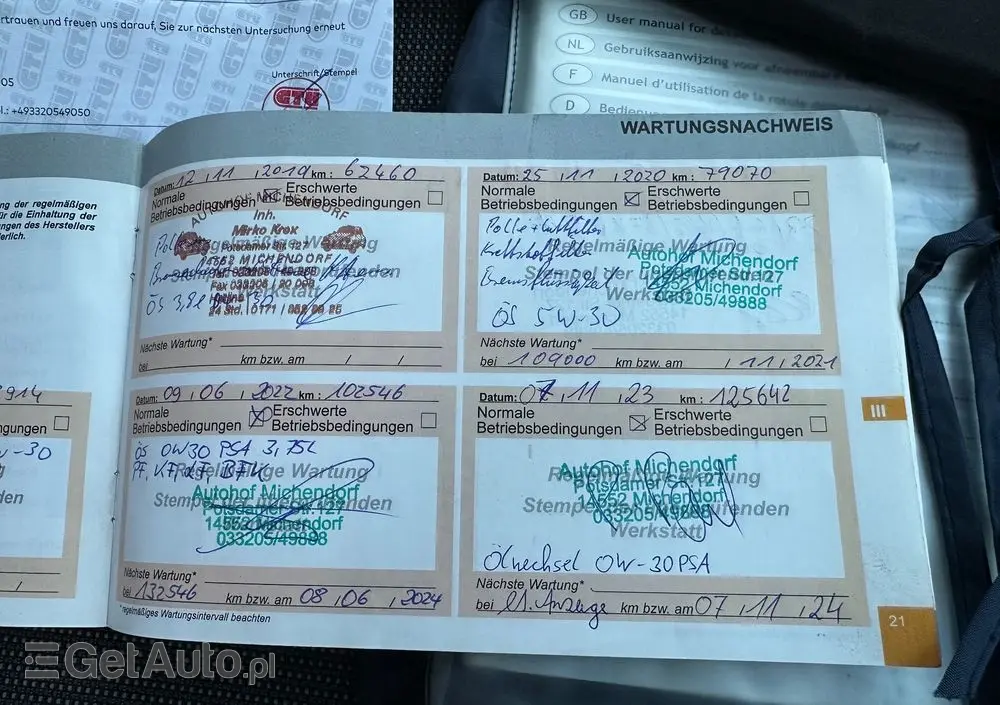 ertrauen und freuen uns darauf, Sie zur nächsten Untersuchung erneut
Unterschrift/Stempel
GTÜ
05
l.: +493320549050
GB User manual for
NL Gebruiksaanwijzing voor
F Manuel d'utilisation de la
D Bedienu
WARTUNGSNACHWEIS
ng der regelmäßigen
für die Einhaltung der
ungen des Herstellers
erlich.
914
ngungen
Datum: 12 / 11 / 2019 km: 62460
Normale Betriebsbedingungen
Erschwerte Betriebsbedingungen
Regelmäßige Wartung
AUTOHOF MICHENDORF
Inh.
Mirko Krox
Potsdamer Str. 127
14552 MICHENDORF
Fax 033205 / 20 909
24 Std. 0171 /
Nächste Wartung*
bei km bzw. am / /
Datum: 25 / 11 / 2020 km: 79070
Normale Betriebsbedingungen
Erschwerte Betriebsbedingungen
Regelmäßige Wartung
Werkstatt
Autohof Michendorf
Potsdamer Str. 127
14552 Michendorf
033205/49888
ÖS 5W-30
Nächste Wartung*
bei 109000 km bzw. am / 11 / 2021
Datum: 09 / 06 / 2022 km: 102546
Normale Betriebsbedingungen
Erschwerte Betriebsbedingungen
ÖS 0W30 PSA 3,75L
Regelmäßige Wartung
Autohof Michendorf
Potsdamer Str. 127
14552 Michendorf
033205/49888
Nächste Wartung*
bei 132546 km bzw. am 08 / 06 / 2024
* regelmäßiges Wartungsintervall beachten
Datum: 07 / 11 / 23 km: 125642
Normale Betriebsbedingungen
Erschwerte Betriebsbedingungen
Regelmäßige Wartung
Autohof Michendorf
Potsdamer Str. 127
14552 Michendorf
033205/49888
Werkstatt
Ölwechsel 0W-30 PSA
Nächste Wartung*
bei lt. Anzeige km bzw. am 07 / 11 / 24
III
21
GetAuto.pl